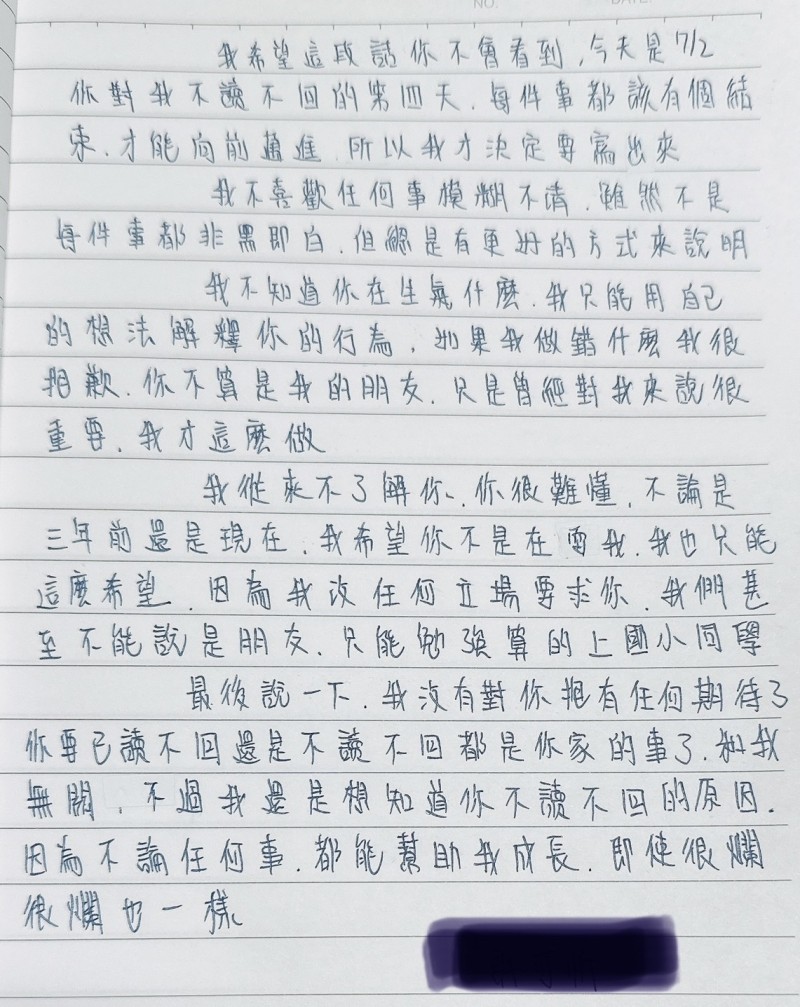 NO.
我希望這段話你不會看到,今天是7/2
你對我不讀不回的第四天,每件事都該有個結
束,才能向前邁進,所以我才決定要寫出來
我不喜歡任何事模糊不清,雖然不是
每件事都非黑即白,但總是有更好的方式來說明
我不知道你在生氣什麼,我只能用自己
的想法解釋你的行為,如果我做錯什麼我很
抱歉,你不算是我的朋友,只是曾經對我來說很
重要,我才這麼做
我從來不了解你,你很難懂,不論是
三年前還是現在,我希望你不是在耍我,我也只能
這麼希望,因為我沒任何立場要求你,我們甚
至不能說是朋友,只能勉強算的上國小同學
最後說一下,我沒有對你抱有任何期待了
你要已讀不回還是不讀不回都是你家的事了,和我
無關,不過我還是想知道你不讀不回的原因,
因為不論任何事,都能幫助我成長,即使很爛
很爛也一樣